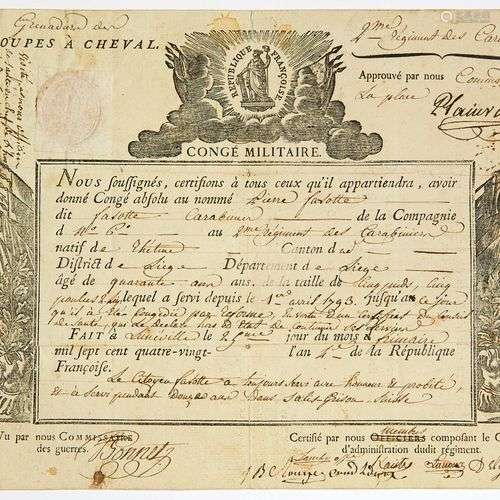 Grenadier des
OUPES À CHEVAL.
2me Régiment des Car
RÉPUBLIQUE FRANÇOISE.
Approuvé par nous Comm
La place
CONGÉ MILITAIRE.
Nous soussignés, certifions à tous ceux qu'il appartiendra, avoir
donné Congé absolu au nommé Pierre fasotte
dit fasotte Carabinier de la Compagnie
d au 2me Régiment des Carabiniers
natif de Canton de
District de Liege Département de Liege
âgé de quarante ans de la taille de Cinq pieds, Cinq
pouces lequel a servi depuis le 1er avril 1793. Jusqu'à ce jour
qu'il a été Congédié par réforme, en vertu d'un Certificat du Conseil
de Santé, qui le Declare hors d'Etat de continuer ses services
FAIT à Luneville le 2 jour du mois de frimaire
mil sept cent quatre-vingt- l'an 4e de la République
Françoise.
Le Citoyen fasotte a toujours servi avec honneur et probité
et a servi pendant douze ans dans Salis Grison Suisse
Vu par nous COMMISSAIRE
des guerres.
Bonnet
Certifié par nous membres OFFICIERS composant le C
d'administration dudit régiment.